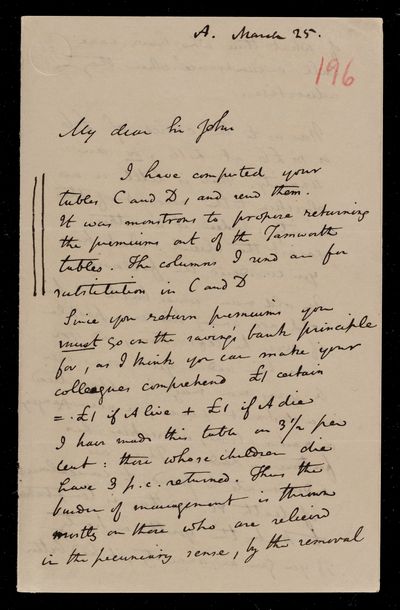 A. March 25.
196
My dear Sir John
I have computed your
tables C and D, and send them.
It was monstrous to propose returning
the premiums out of the Tamworth
tables. The columns I send are for
substitution in C and D
Since you return premiums you
must go on the savings bank principle
for, as I think you can make your
colleagues comprehend £1 certain
= £1 if A live + £1 if A die
I have made this table on 3½ per
cent: those whose children die
have 3 p.c. returned. Thus the
burden of management is thrown
mostly on those who are relieved
in the pecuniary sense, by the removal